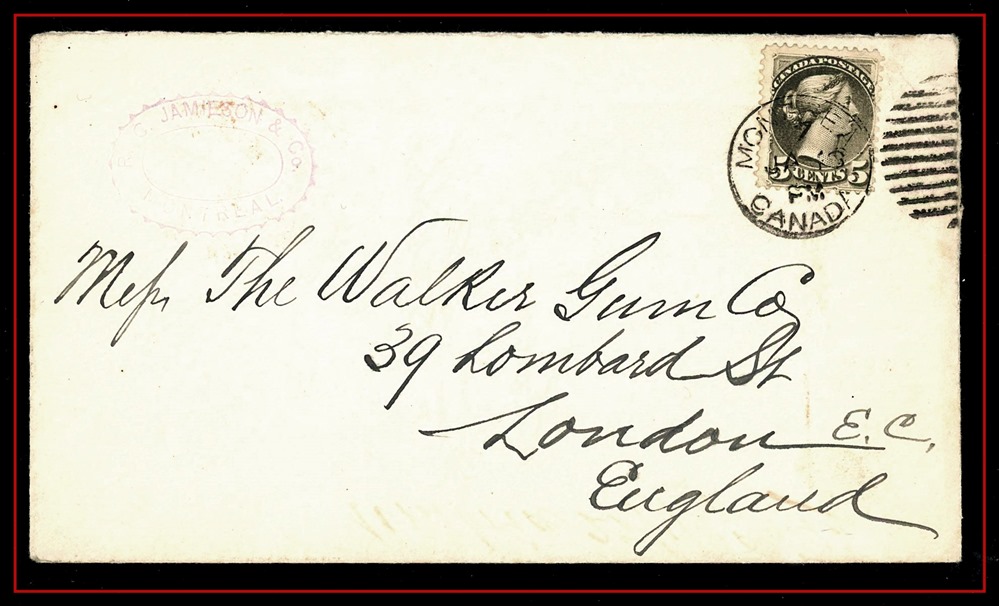 R. C. JAMIESON & Co.
MONTREAL
CANADA POSTAGE
5 CENTS 5
MONTREAL
7
JA 13
PM
CANADA
Mess. The Walker Gum Co
39 Lombard St
London E.C.
England